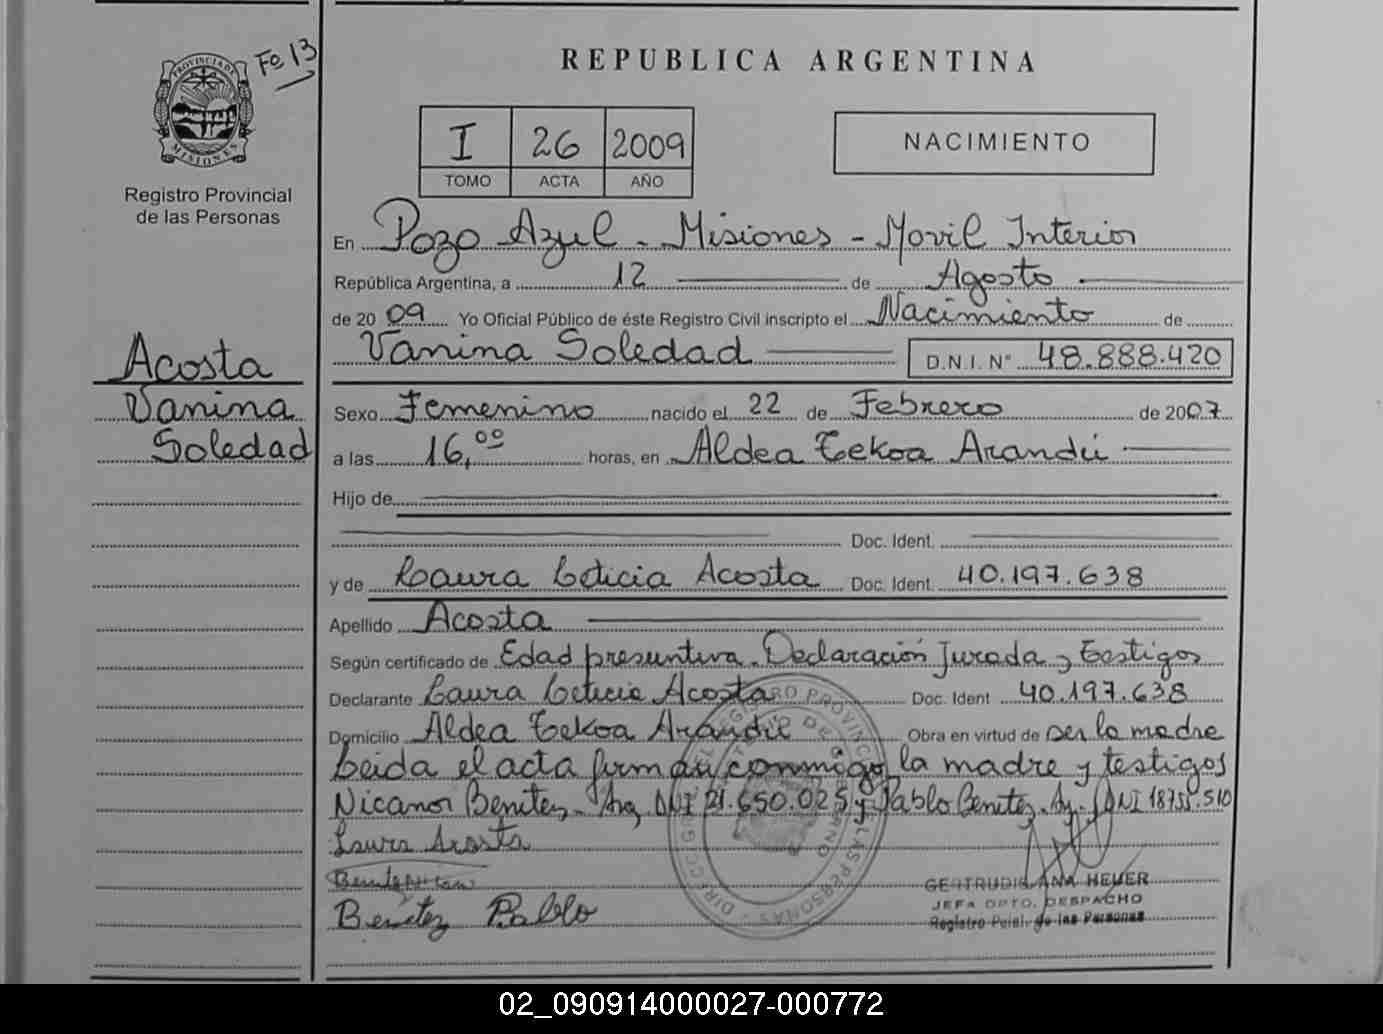 Fº 13
PROVINCIA DE
MISIONES
Registro Provincial
de las Personas
REPUBLICA ARGENTINA
I 26 2009
TOMO ACTA AÑO
NACIMIENTO
En Pozo Azul - Misiones - Movil Interior
República Argentina, a 12 de Agosto
de 20 09 Yo Oficial Público de éste Registro Civil inscripto el Nacimiento de
Vanina Soledad D.N.I. N° 48.888.420
Acosta
Vanina
Soledad
Sexo Femenino nacido el 22 de Febrero de 2007
a las 16,00 horas, en Aldea Tekoa Arandú
Hijo de
Doc. Ident.
y de Laura Leticia Acosta Doc. Ident. 40.197.638
Apellido Acosta
Según certificado de Edad presuntiva. Declaración Jurada y Testigos
Declarante Laura Leticia Acosta Doc. Ident 40.197.638
Domicilio Aldea Tekoa Arandú Obra en virtud de ser la madre
Leida el acta firman conmigo la madre y testigos
Nicanor Benitez - Arg DNI 21.650.025 y Pablo Benitez. Ag. DNI
Laura Acosta
Benitez
Benítez Pablo
GERTRUDIS ANA HEUER
JEFA DPTO. DESPACHO
Registro Pcial. de las Personas
02_090914000027-000772